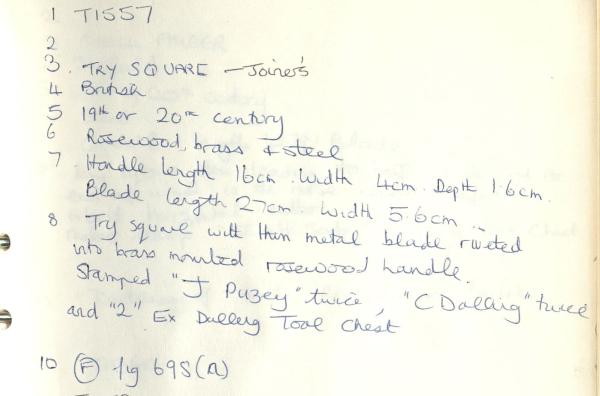 1 T1557
2
3. TRY SQUARE - Joiner's
4 British
5 19th or 20th century
6 Rosewood, brass & steel
7 Handle length 16cm. Width 4cm. Depth 1.6cm.
Blade length 27cm. Width 5.6cm.
8 Try square with thin metal blade riveted
into brass mounted rosewood handle.
Stamped "J Puzey" twice, "C Dalling" twice
and "2" Ex Dalling Tool Chest
10 (F) fig 698(A)